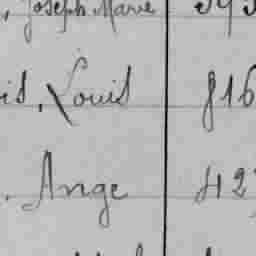 , Joseph Marie
is, Louis 816
. Ange 427